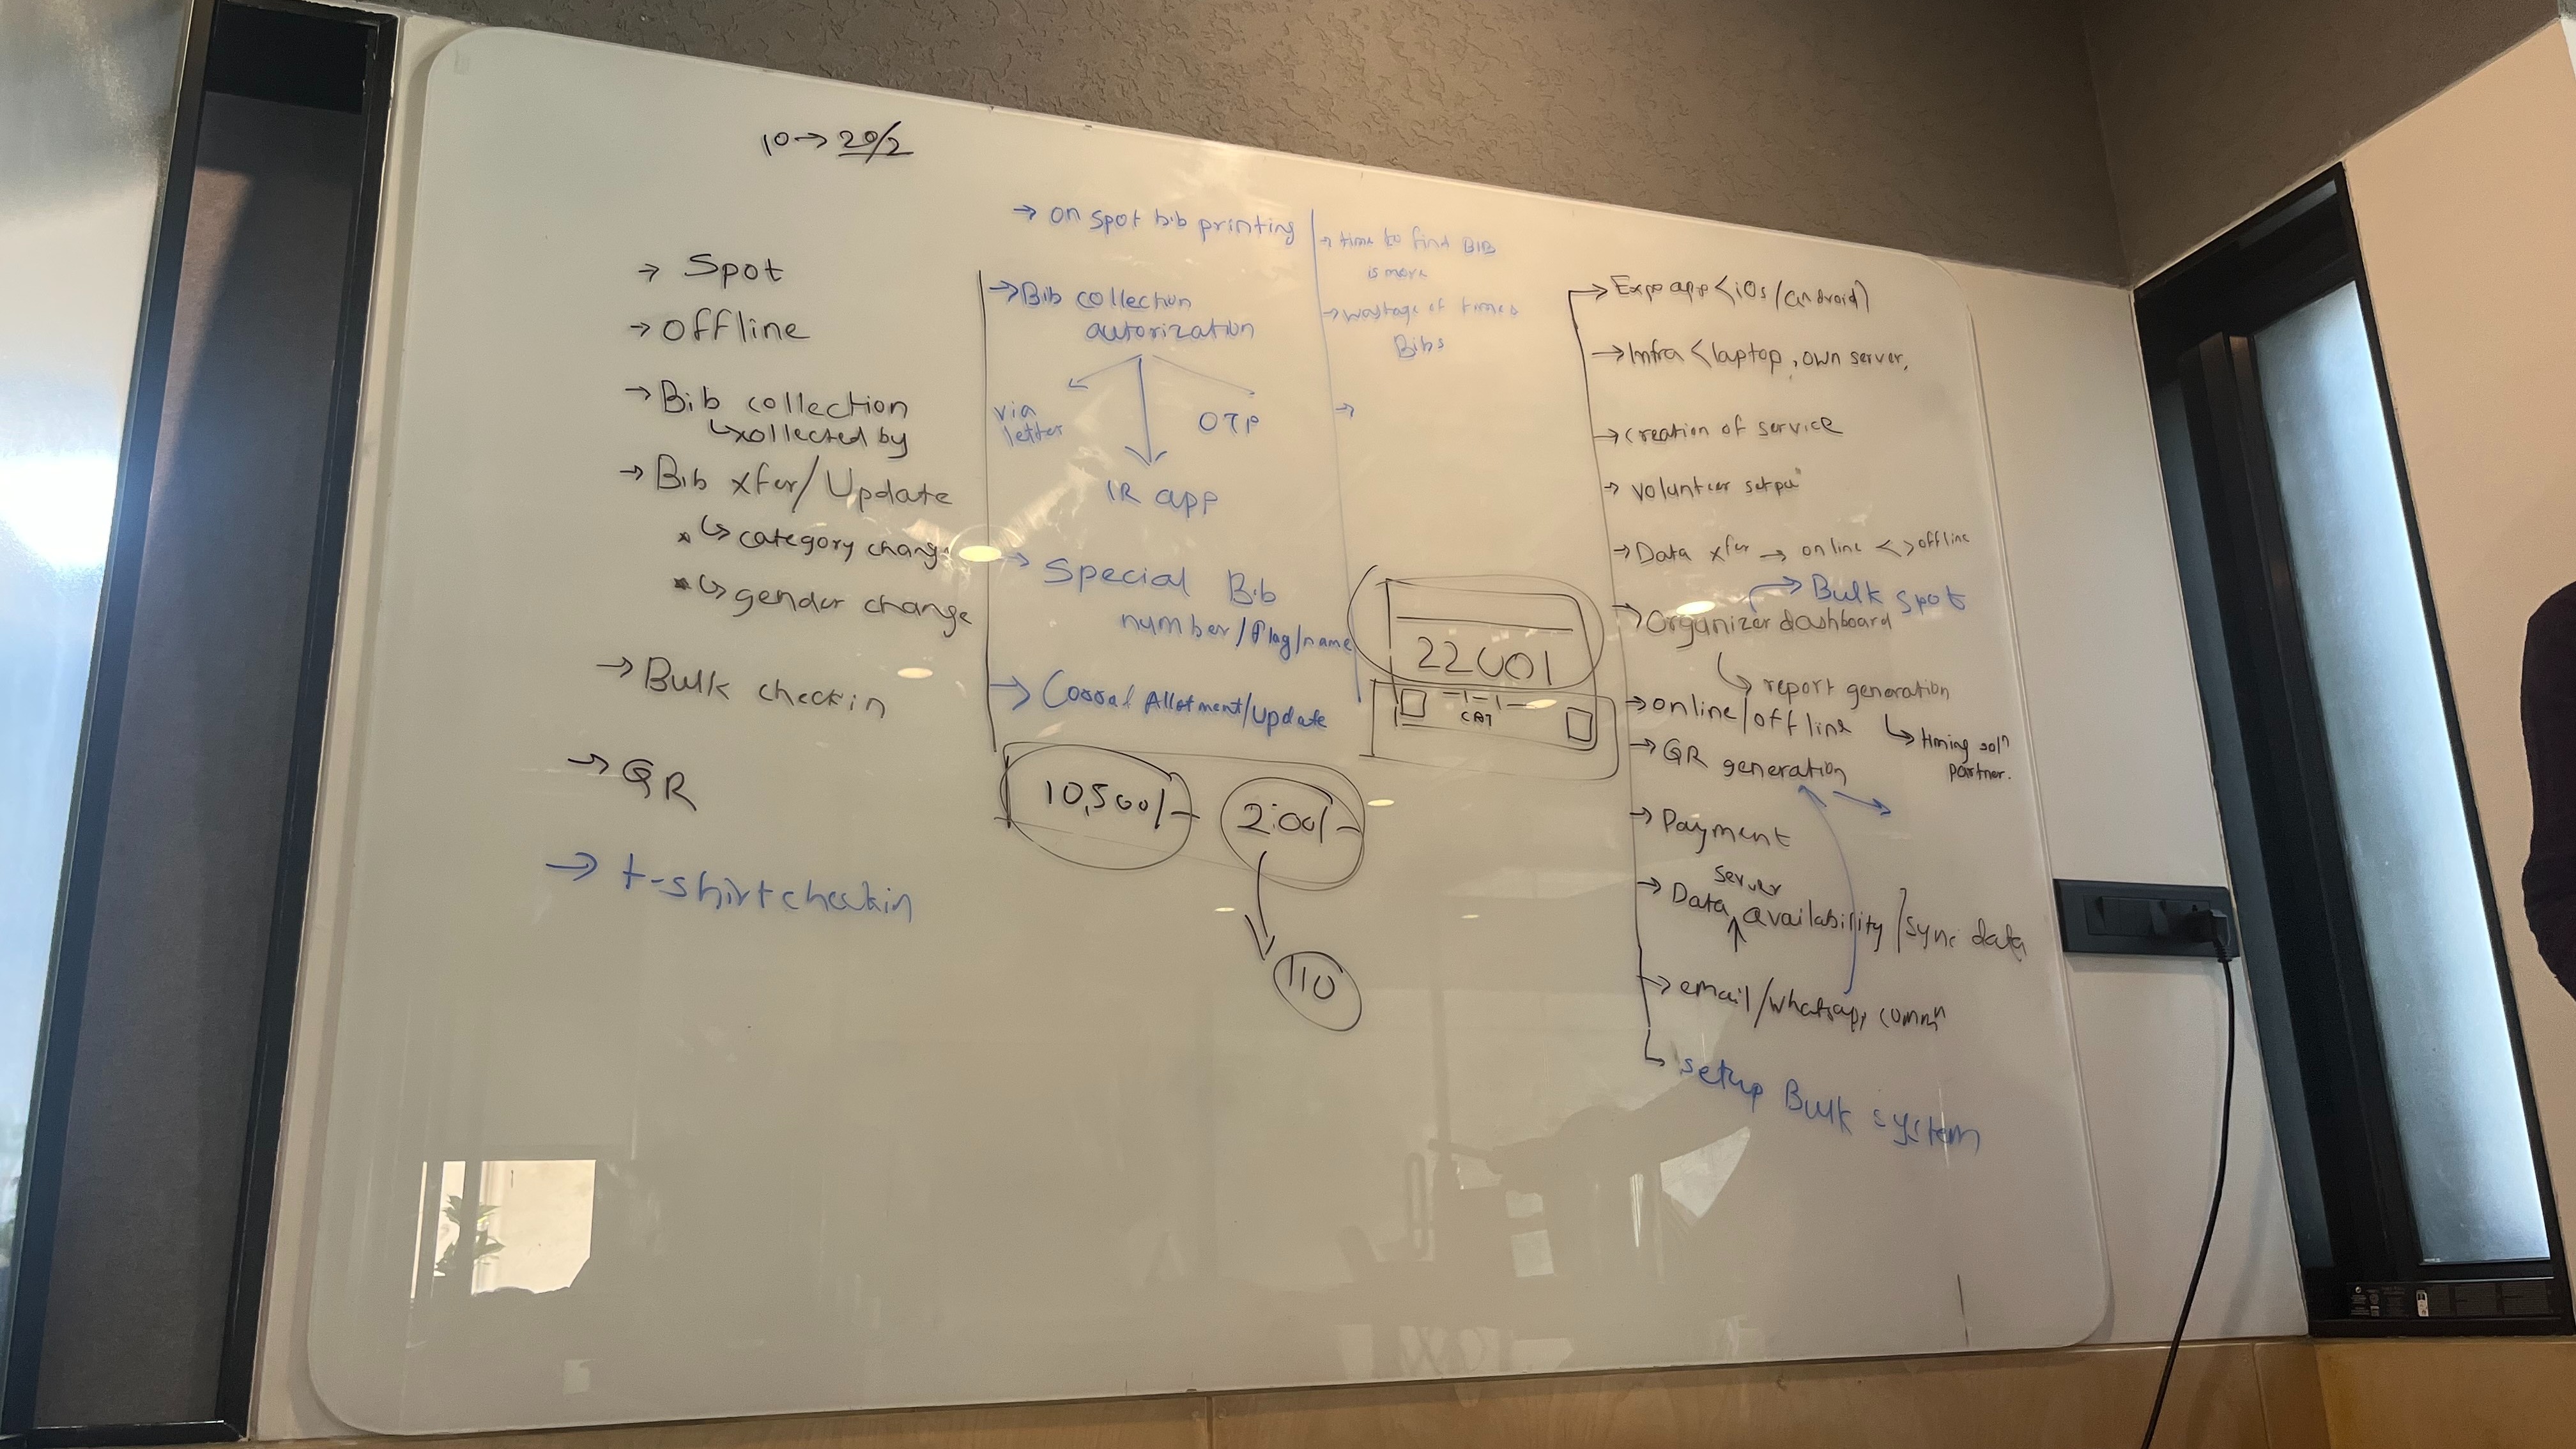 10 → 20/2
→ Spot
→ offline
→ Bib collection
↳ collected by
→ Bib xfer/Update
* ↳ category change
* ↳ gender change
→ Bulk checkin
→ QR
→ t-shirt checkin
→ on spot bib printing
→ Bib collection
autorization
via
letter
OTP
IR app
→ Special Bib
number/flag/name
→ Allotment/update
10,500/-
110
→ time to find BIB
is more
→ wastage of
Bibs
→
CAT
→ Expo app < iOS/android)
→ Infra < laptop, own server,
→ creation of service
→ volunteer
→ Data xfer → online <> offline
→ Bulk spot
→ Organizer dashboard
↳ report generation
→ online/offline
↳ timing solⁿ
partner.
→ QR generation →
→ Payment
server
→ Data ↑ availability / sync data
→ email/whatsapp commⁿ
↳ setup Bulk system